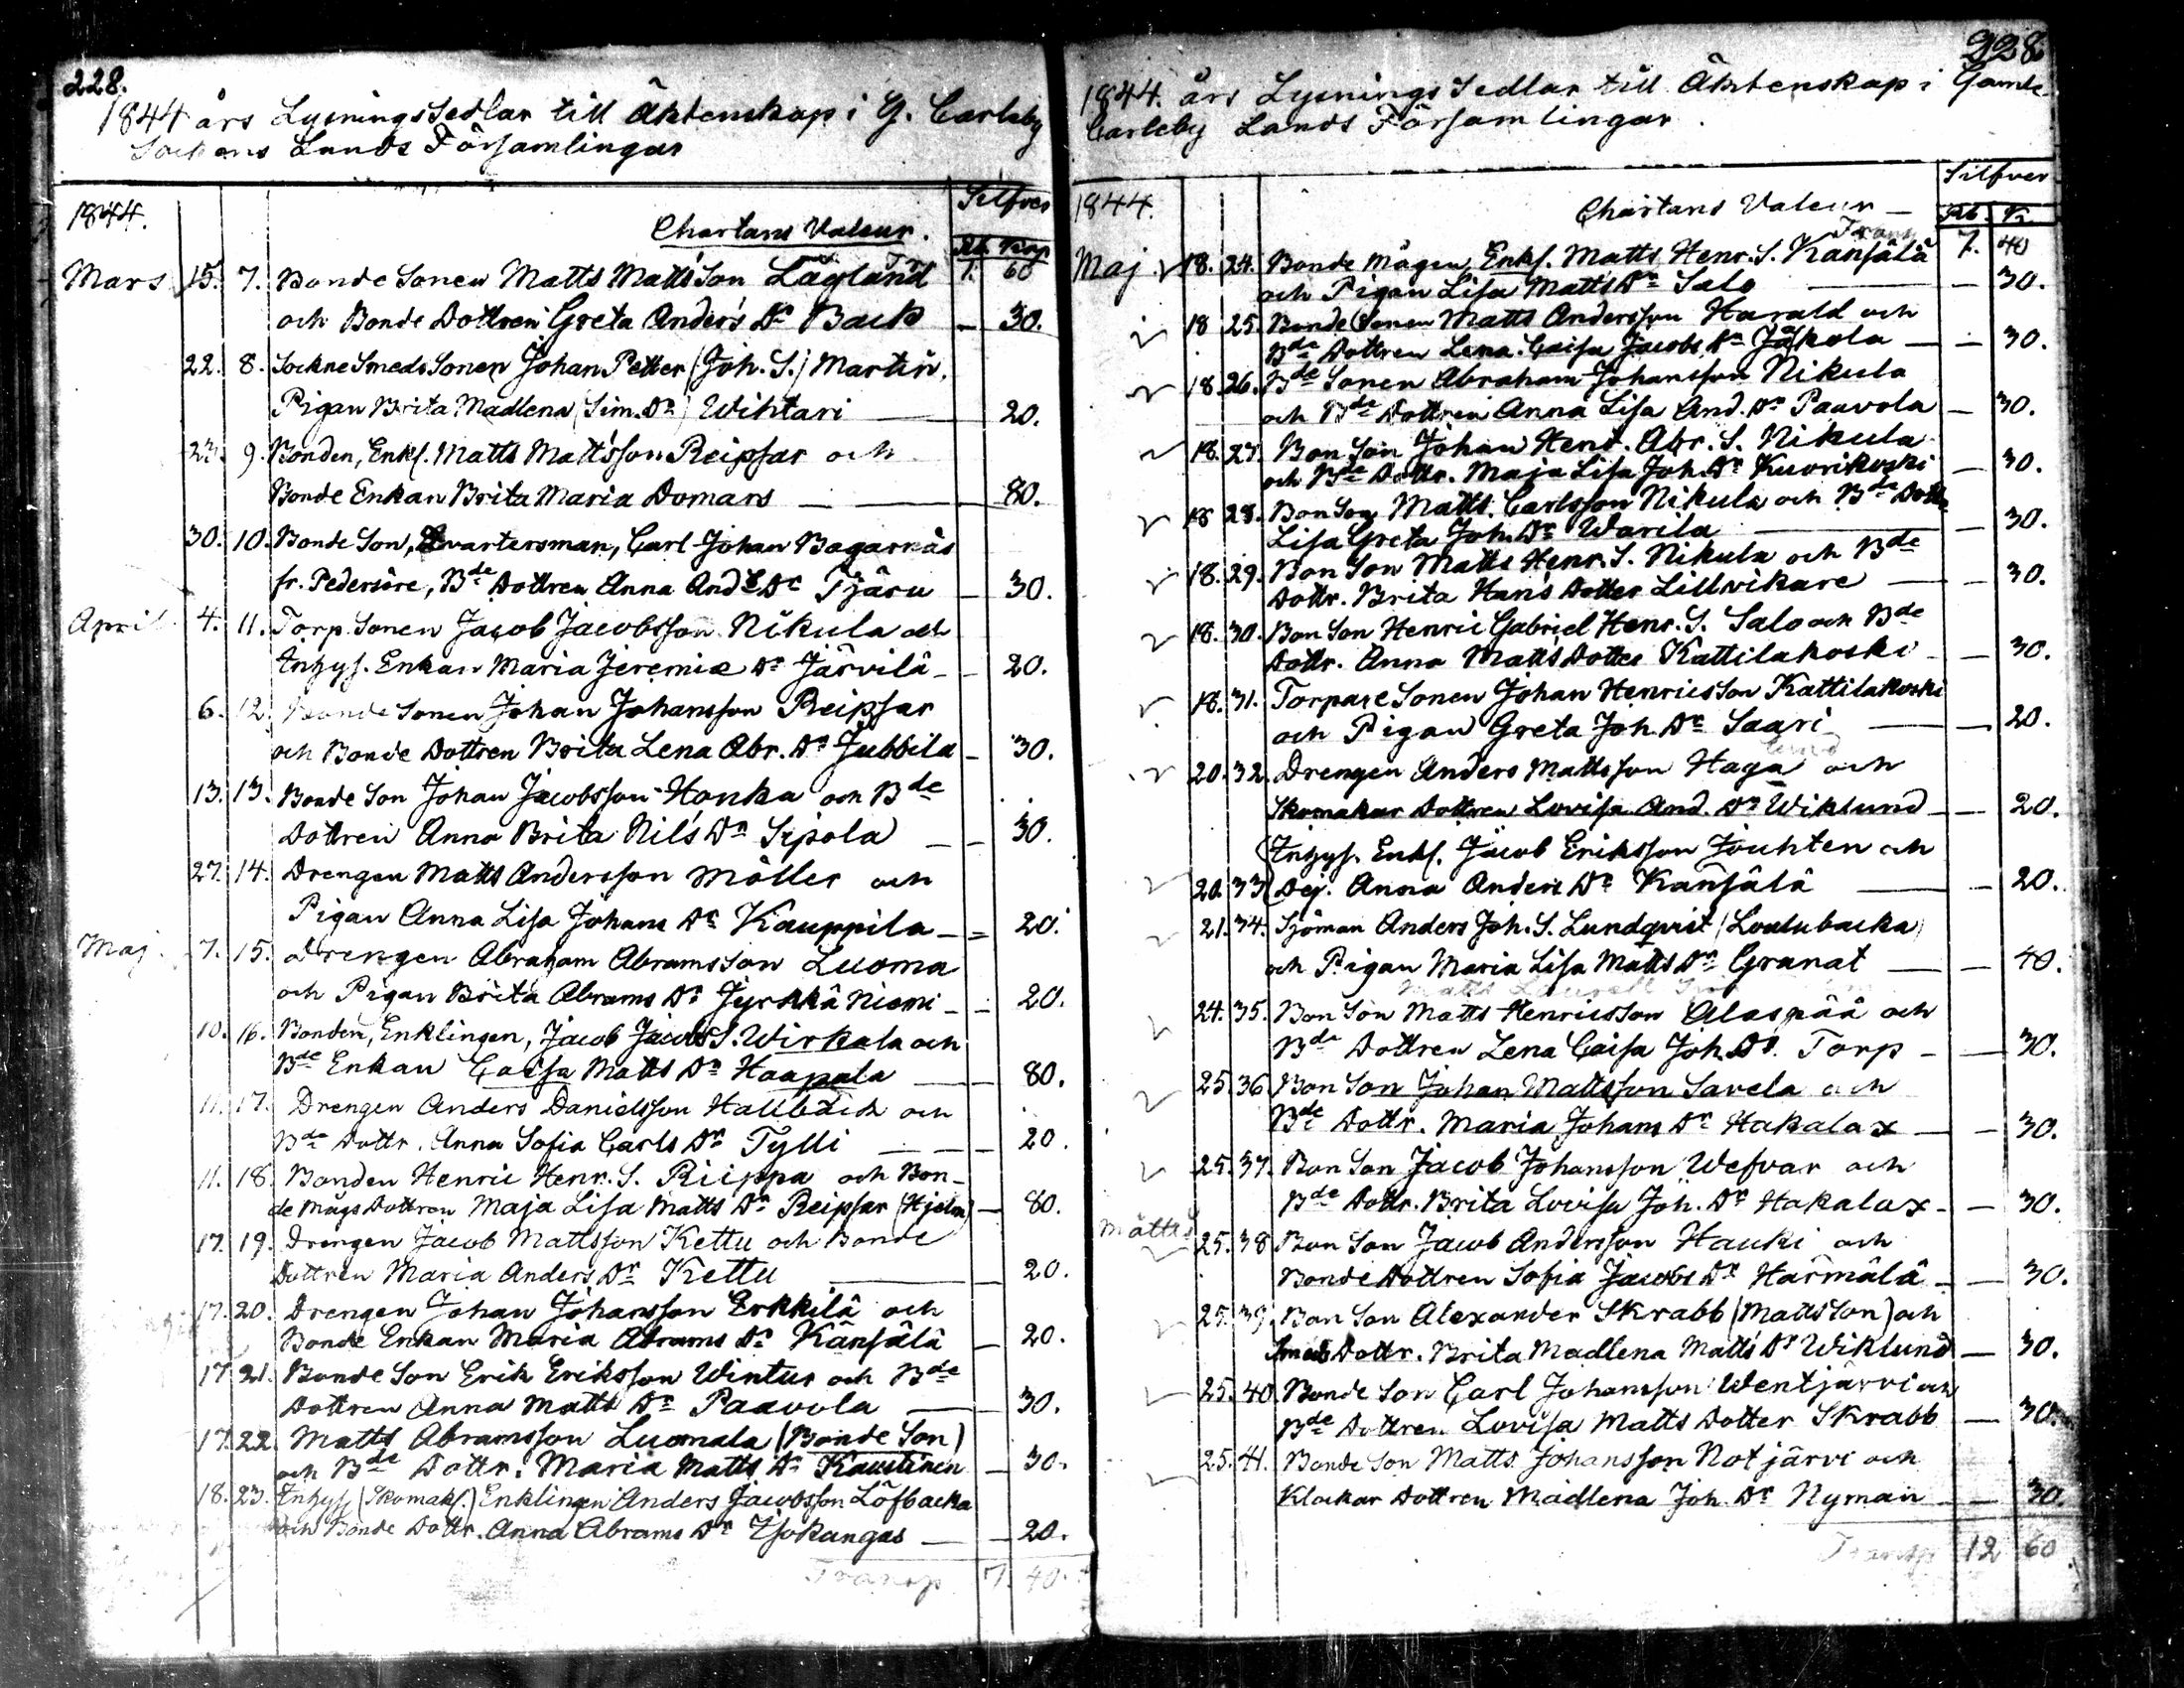 228.
1844 års Lysnings Sedlar till Äktenskap i G. Carleby
Sockens Lands Församlingar
1844.
Chartans Valeur.
Silfver
Rb. Kop
Mars 15. 7. Bonde Sonen Matts Matts Son Lågland Tr. 1. 60
och Bonde Dottren Greta Anders Dr Back — 30.
22. 8. Sockne Smeds Sonen Johan Petter (Joh. S.) Martin,
Pigan Brita Madlena (Sim. Dr) Wihtari — 20.
23. 9. Bonden, Enkl. Matts Mattsson Reipsar och
Bonde Enkan Brita Maria Domars — 80.
30. 10. Bonde Son, Qvartersman, Carl Johan Bagarnäs
fr. Pedersöre, Bde Dottren Anna And. Dr Tjäru — 30.
April 4. 11. Torp. Sonen Jacob Jacobsson Nikula och
Inhys. Enkan Maria Jeremiæ Dr Järvilä — 20.
6. 12. Bonde Sonen Johan Johansson Reipsar
och Bonde Dottren Brita Lena Abr. Dr Jubbila — 30.
13. 13. Bonde Son Johan Jacobsson Honka och Bde
Dottren Anna Brita Nils Dr Sipola — 30.
27. 14. Drengen Matts Andersson Möller och
Pigan Anna Lisa Johans Dr Kauppila — 20.
Maj 7. 15. Drengen Abraham Abramsson Luoma
och Pigan Brita Abrams Dr Jyrkkä Niemi — 20.
10. 16. Bonden, Enklingen, Jacob Jacobs S. Wirkala och
Bde Enkan Caisa Matts Dr Haapala — 80.
11. 17. Drengen Anders Danielsson Hallbäck och
Bde Dottr. Anna Sofia Carls Dr Tylli — 20.
11. 18. Bonden Henric Henr. S. Riippa och Bon-
de Mågs Dottren Maja Lisa Matts Dr Reipsar (Hjelm) — 80.
17. 19. Drengen Jacob Mattsson Kettu och Bonde
Dottren Maria Anders Dr Kettu — 20.
17. 20. Drengen Johan Johansson Erkkilä och
Bonde Enkan Maria Abrams Dr Känsälä — 20.
17. 21. Bonde Son Erik Eriksson Wintur och Bde
Dottren Anna Matts Dr Paavola — 30.
17. 22. Matts Abramsson Luomala (Bonde Son)
och Bde Dottr. Maria Matts Dr Kaustinen — 30.
18. 23. Inhys. (Skomak.) Enklingen Anders Jacobsson Löfbacka
och Bonde Dottr. Anna Abrams Dr Isokangas — 20.
Transp 7. 40.
228
1844. års Lysnings Sedlar till Äktenskap i Gamle
Carleby Lands Församlingar.
1844.
Chartans Valeur —
Silfver
Rb. K.
Transp 7. 40
Maj. 18. 24. Bonde Mågen, Enkl. Matts Henr. S. Känsälä
och Pigan Lisa Matts Dr Salo — 30.
18 25. Bonde Sonen Matts Andersson Harald och
Bde Dottren Lena Caisa Jacobs Dr Jåkola — 30.
18 26. Bde Sonen Abraham Johansson Nikula
och Bde Dottren Anna Lisa And. Dr Paavola — 30.
18. 27. Bon Son Johan Hend. Abr. S. Nikula
och Bde Dottr. Maja Lisa Joh. Dr Kuorikoski — 30.
18 28. Bon Son Matts Carlsson Nikula och Bde Dottr
Lisa Greta Joh. Dr Warila — 30.
18. 29. Bon Son Matts Henr. S. Nikula och Bde
Dottr. Brita Hans Dotter Lillvikare — 30.
18. 30. Bon Son Henric Gabriel Henr. S. Salo och Bde
Dottr. Anna Matts Dotter Kattilakoski — 30.
18. 31. Torpare Sonen Johan Henricsson Kattilakoski
och Pigan Greta Joh. Dr Saari — 20.
20. 32. Drengen Anders Mattsson Haga och
Skomakar Dottren Lovisa And. Dr Wiklund — 20.
Inhys. Enkl. Jacob Eriksson Jouhten och
20. 33 Dej. Anna Anders Dr Känsälä — 20.
21. 34. Sjöman Anders Joh. S. Lundqvist (Loulubacka)
och Pigan Maria Lisa Matts Dr Granat — 40.
24. 35. Bon Son Matts Henricsson Alaspää och
Bde Dottren Lena Caisa Joh. Dr. Torp — 30.
25. 36. Bon Son Johan Mattsson Savela och
Bde Dottr. Maria Johans Dr Hakalax — 30.
25. 37. Bon Son Jacob Johansson Wefvar och
Bde Dottr. Brita Lovisa Joh. Dr Hakalax — 30.
25. 38 Bon Son Jacob Andersson Hauki och
Bonde Dottren Sofia Jacobs Dr Härmälä — 30.
25. 39. Bon Son Alexander Skrabb (Mattsson) och
Smeds Dottr. Brita Madlena Matts Dr Wiklund — 30.
25. 40 Bonde Son Carl Johansson Wentjärvi och
Bde Dottren Lovisa Matts Dotter Skrabb — 30.
25. 41. Bonde Son Matts Johansson Notjärvi och
Klockar Dottren Madlena Joh. Dr Nyman — 30.
Transp 12 60